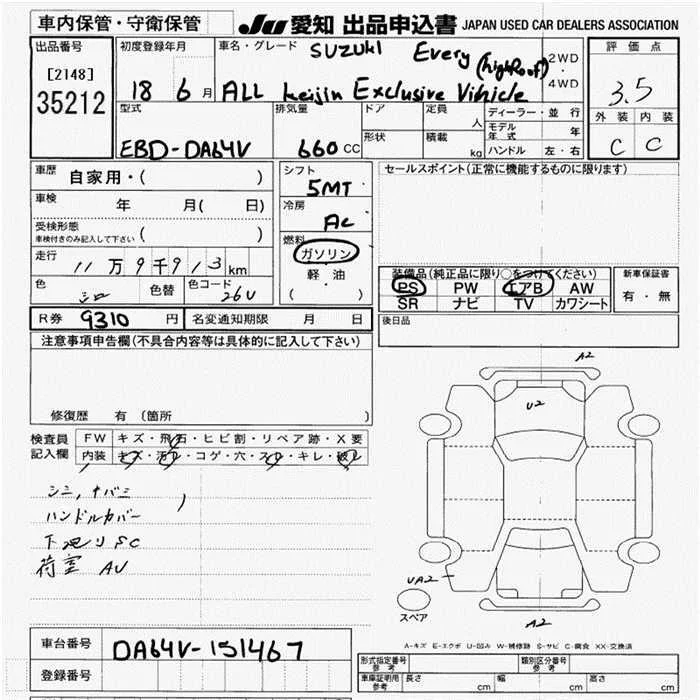 車内保管・守衛保管
JU 愛知 出品申込書 JAPAN USED CAR DEALERS ASSOCIATION
出品番号
[2148]
35212
初度登録年月
18 6 月
車名・グレード SUZUKI Every (highRoof)
ALL keijin Exclusive Vihicle
2WD
・
4WD
評価点
3.5
外装 内装
C C
型式
EBD-DA64V
排気量
660 CC
ドア
形状
定員
人
積載
kg
ディーラー・並行
モデル年式 年
ハンドル 左・右
車歴 自家用・( )
車検 年 月( 日)
受検形態
車検付きのみ記入して下さい ( )
走行 11万9千913km
色 シロ 色替 色コード 26U
シフト
5MT
冷房
AC
燃料
ガソリン
軽油
( ・ )
セールスポイント(正常に機能するものに限ります)
装備品(純正品に限り○をつけてください)
PS PW エアB AW
SR ナビ TV カワシート
新車保証書
有・無
R券 9310 円 名変通知期限 月 日
後日品
注意事項申告欄(不具合内容等は具体的に記入して下さい)
修復歴 有 (箇所 )
検査員記入欄
FW キズ・飛石・ヒビ割・リペア跡・X要
内装 キズ・汚レ・コゲ・穴・スレ・キレ・破レ
シミ,
ハンドルカバー
下廻りSC
荷室 AU
A2
U2
UA2
スペア
A2
A-キズ E-エクボ U-凹み W-補修跡 S-サビ C-腐食 XX-交換済
車台番号 DA64V-151467
登録番号
型式指定番号 参考
類別区分番号 参考
車庫証明用 参考 長さ cm 幅 cm 高さ cm